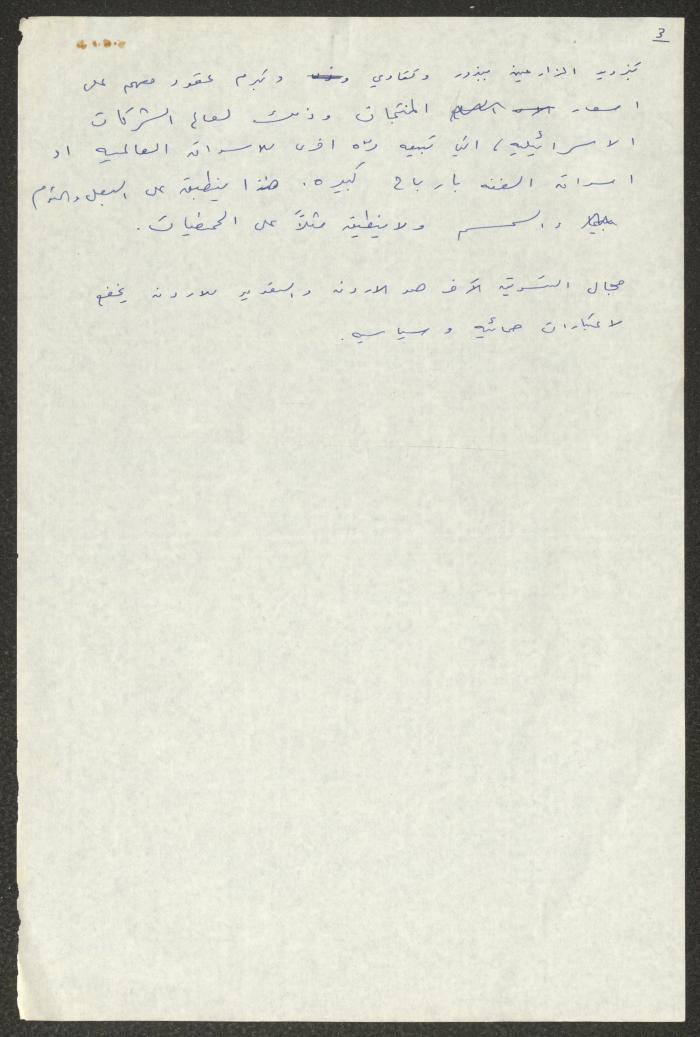 3
بتزويد المزارعين ببذور وتقاوي وتبرم عقود معهم على
اسعار المنتجات وذلك لصالح الشركات
الاسرائيليه، التي تبيعه مره اخرى للاسواق العالميه او
اسواق الضفه بارباح كبيره. هذا ينطبق على البصل والثوم
والسمسم ولا ينطبق مثلاً على الحمضيات.
مجال التسويق الآخر هو الاردن والتصدير للاردن يخضع
لاعتبارات حمائيه وسياسيه.